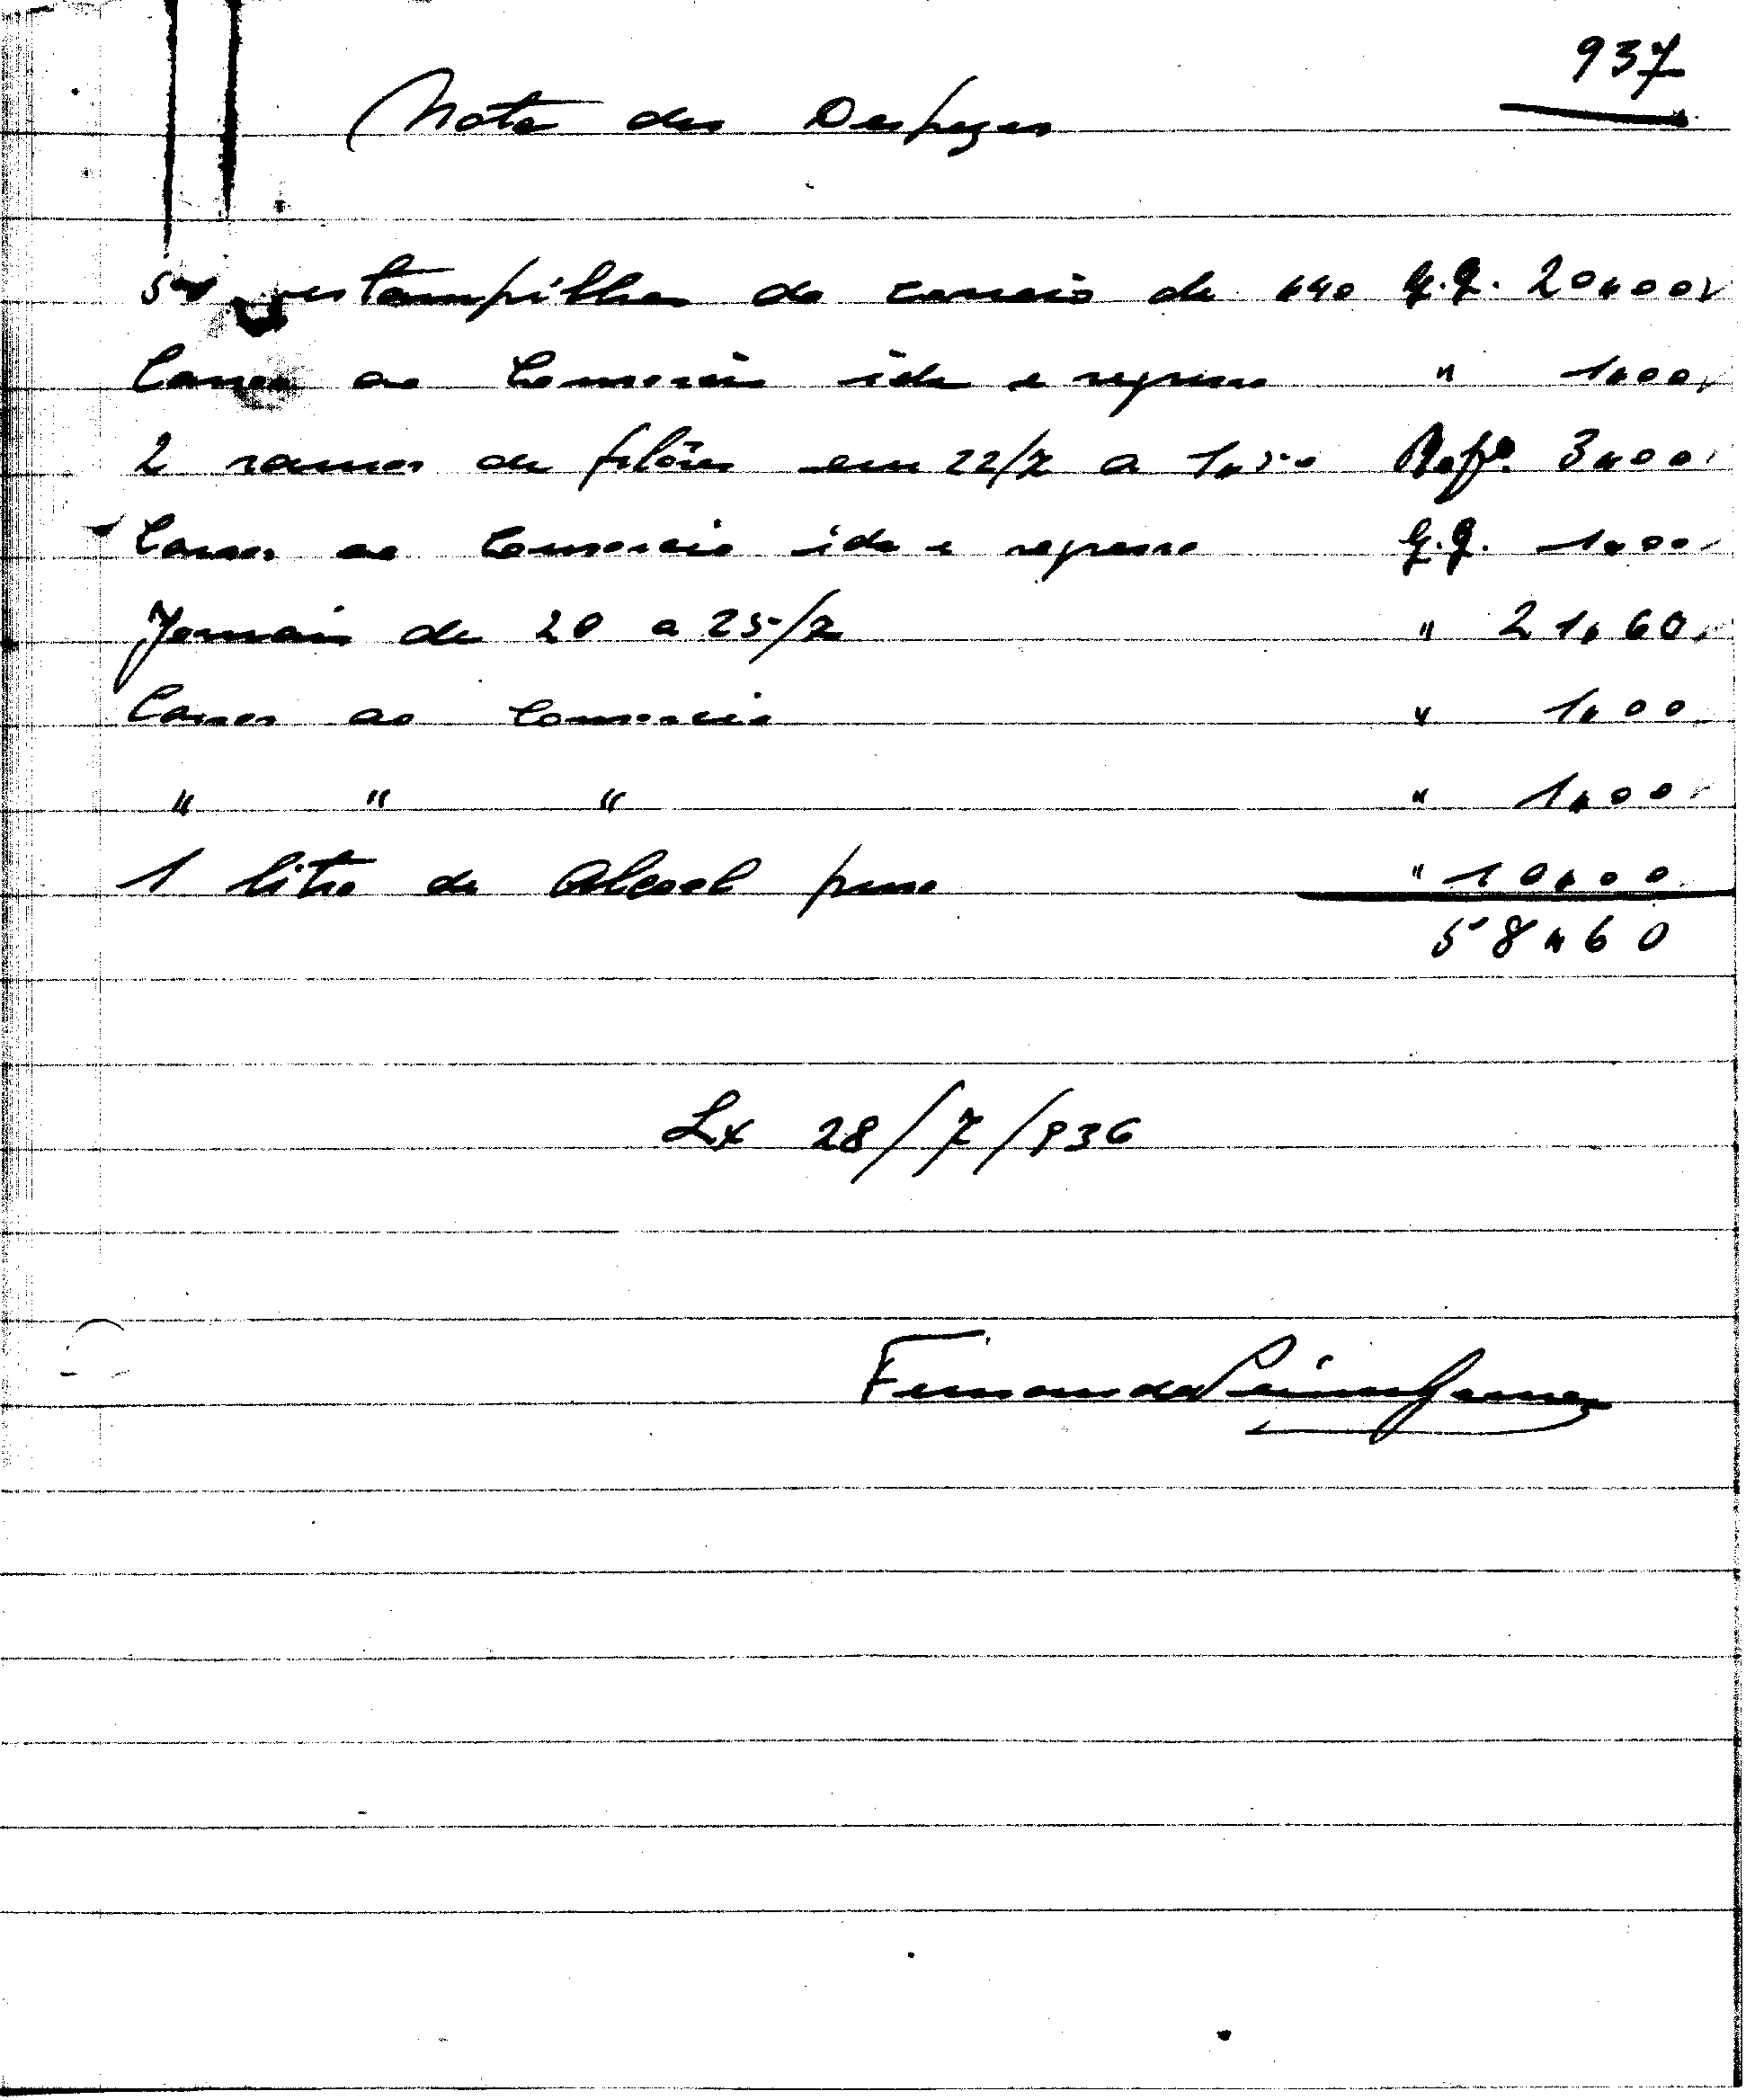 937
Nota das Despezas
estampilhas do correio de $40 G.G. 20$00
Carros ao Comercio ida e regresso " 1$00
2 ramos de flôres em 22/7 a 1$50 3$00
Carros ao Comercio ida e regresso G.G. 1$00
Jornais de 20 a 25/7 " 21$60
Carros ao Comercio " 1$00
" " " " 1$00
1 litro de Alcool puro " 10$00
58$60
Lx 28/7/936
Fernando